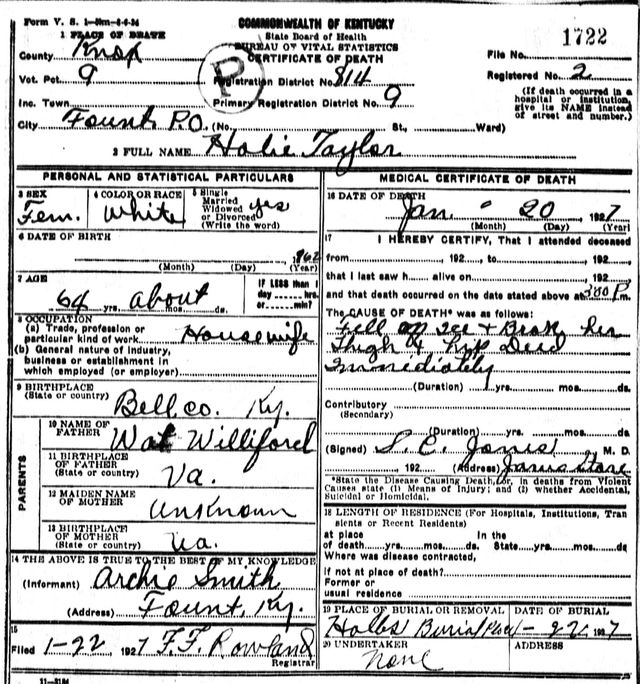 Form V. S. 1-
COMMONWEALTH OF KENTUCKY
State Board of Health
BUREAU OF VITAL STATISTICS
CERTIFICATE OF DEATH
1722
1 PLACE OF DEATH
County Knox
File No.
Vot. Pct. 9
P
Registration District No. 814
Registered No. 2
Inc. Town
Primary Registration District No. 9
(If death occurred in a hospital or institution, give its NAME instead of street and number.)
City Fount P.O. (No. St., Ward)
2 FULL NAME Holie Taylor
PERSONAL AND STATISTICAL PARTICULARS
3 SEX Fem.
4 COLOR OR RACE White
5 Single Married Widowed or Divorced (Write the word) yes
6 DATE OF BIRTH
(Month) (Day) 1862 (Year)
7 AGE
64 yrs. about mos. ds.
IF LESS than 1 day hrs. or min?
8 OCCUPATION
(a) Trade, profession or particular kind of work Housewife
(b) General nature of industry, business or establishment in which employed (or employer)
9 BIRTHPLACE (State or country) Bell, co. Ky.
PARENTS
10 NAME OF FATHER Wat Williford
11 BIRTHPLACE OF FATHER (State or country) Va.
12 MAIDEN NAME OF MOTHER Unknown
13 BIRTHPLACE OF MOTHER (State or country) Va.
14 THE ABOVE IS TRUE TO THE BEST OF MY KNOWLEDGE
(Informant) Archie Smith
(Address) Fount, Ky.
15 Filed 1-22 1927 F.F. Rowland Registrar
MEDICAL CERTIFICATE OF DEATH
16 DATE OF DEATH
Jan 20, 1927
(Month) (Day) (Year)
17 I HEREBY CERTIFY, That I attended deceased
from , 192 , to , 192 ,
that I last saw h alive on , 192 ,
and that death occurred on the date stated above at 3:00 P.m.
The CAUSE OF DEATH* was as follows:
Fell on Ice & Broke her
Thigh & hip Died
Immediately
(Duration) yrs. mos. ds.
Contributory (Secondary)
(Duration) yrs. mos. ds.
(Signed) S. C. Jones M. D.
192 (Address) Jarvis Store
*State the Disease Causing Death, or, in deaths from Violent Causes state (1) Means of Injury; and (2) whether Accidental, Suicidal or Homicidal.
18 LENGTH OF RESIDENCE (For Hospitals, Institutions, Transients or Recent Residents)
at place of death yrs. mos. ds. In the State yrs. mos. ds
Where was disease contracted,
if not at place of death?
Former or usual residence
19 PLACE OF BURIAL OR REMOVAL DATE OF BURIAL
Hobbs Burial place 1-22, 1927
20 UNDERTAKER ADDRESS
None